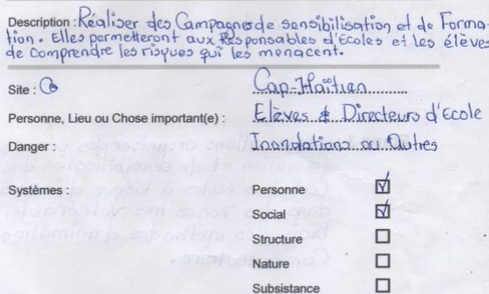 Description : Réaliser des Campagnes de sensibilisation et de Forma-
tion. Elles permetteront aux Responsables d'Ecoles et les élèves
de comprendre les risques qui les menacent.
Site : Cap-Haïtien
Personne, Lieu ou Chose important(e) : Elèves & Directeurs d'Ecole
Danger : Inondations ou Autres
Systèmes : Personne ☑
Social ☑
Structure ☐
Nature ☐
Subsistance ☐